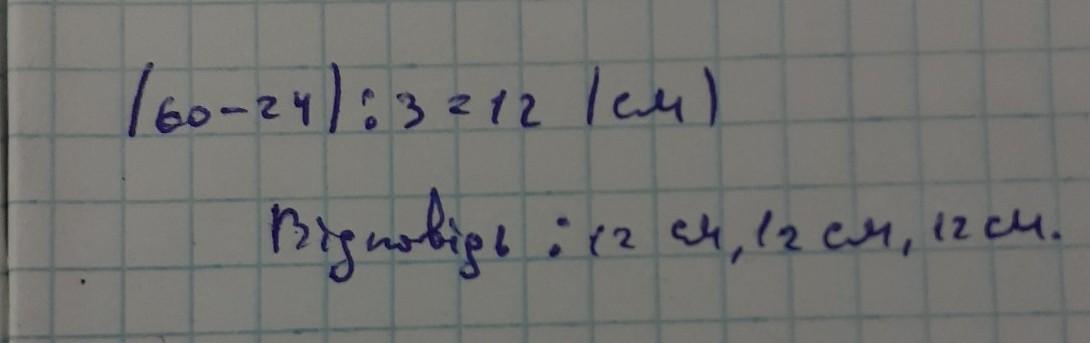 (60-24):3=12 (см)
Відповідь: 12 см, 12 см, 12 см.